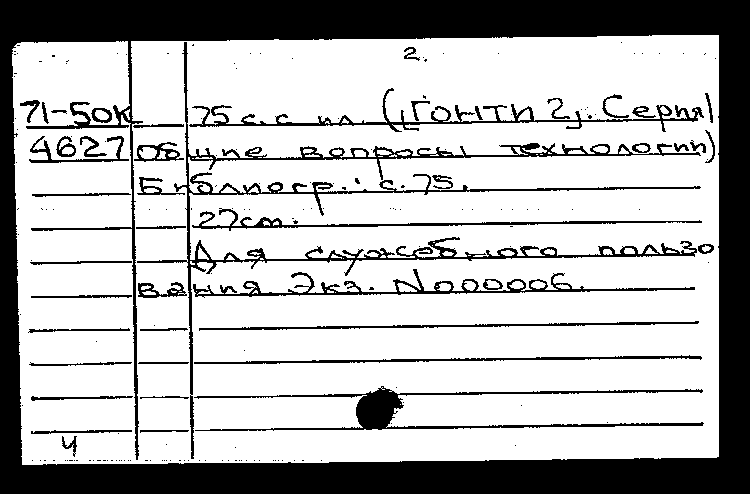 2.
71-50к 75 с. с ил. ([ГОНТИ 2]. Серия
4627 Общие вопросы технологии)
Библиогр.: с. 75.
27см.
Для служебного пользо
вания Экз. N000006.
4